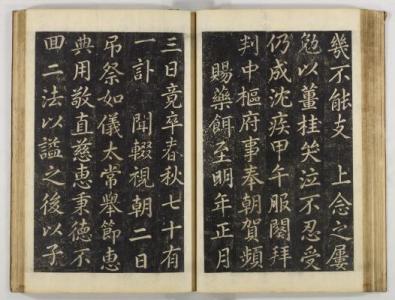 幾不能支 上念之屢
勉以董桂泣不忍受
仍成沈疾甲午服闋拜
判中樞府事奉朝賀頻
賜藥餌至明年正月
三日竟卒春秋七十有
一訃 聞輟視朝二日
吊祭如儀太常舉節惠
典用敬直慈惠秉德不
回二法以謚之後以子